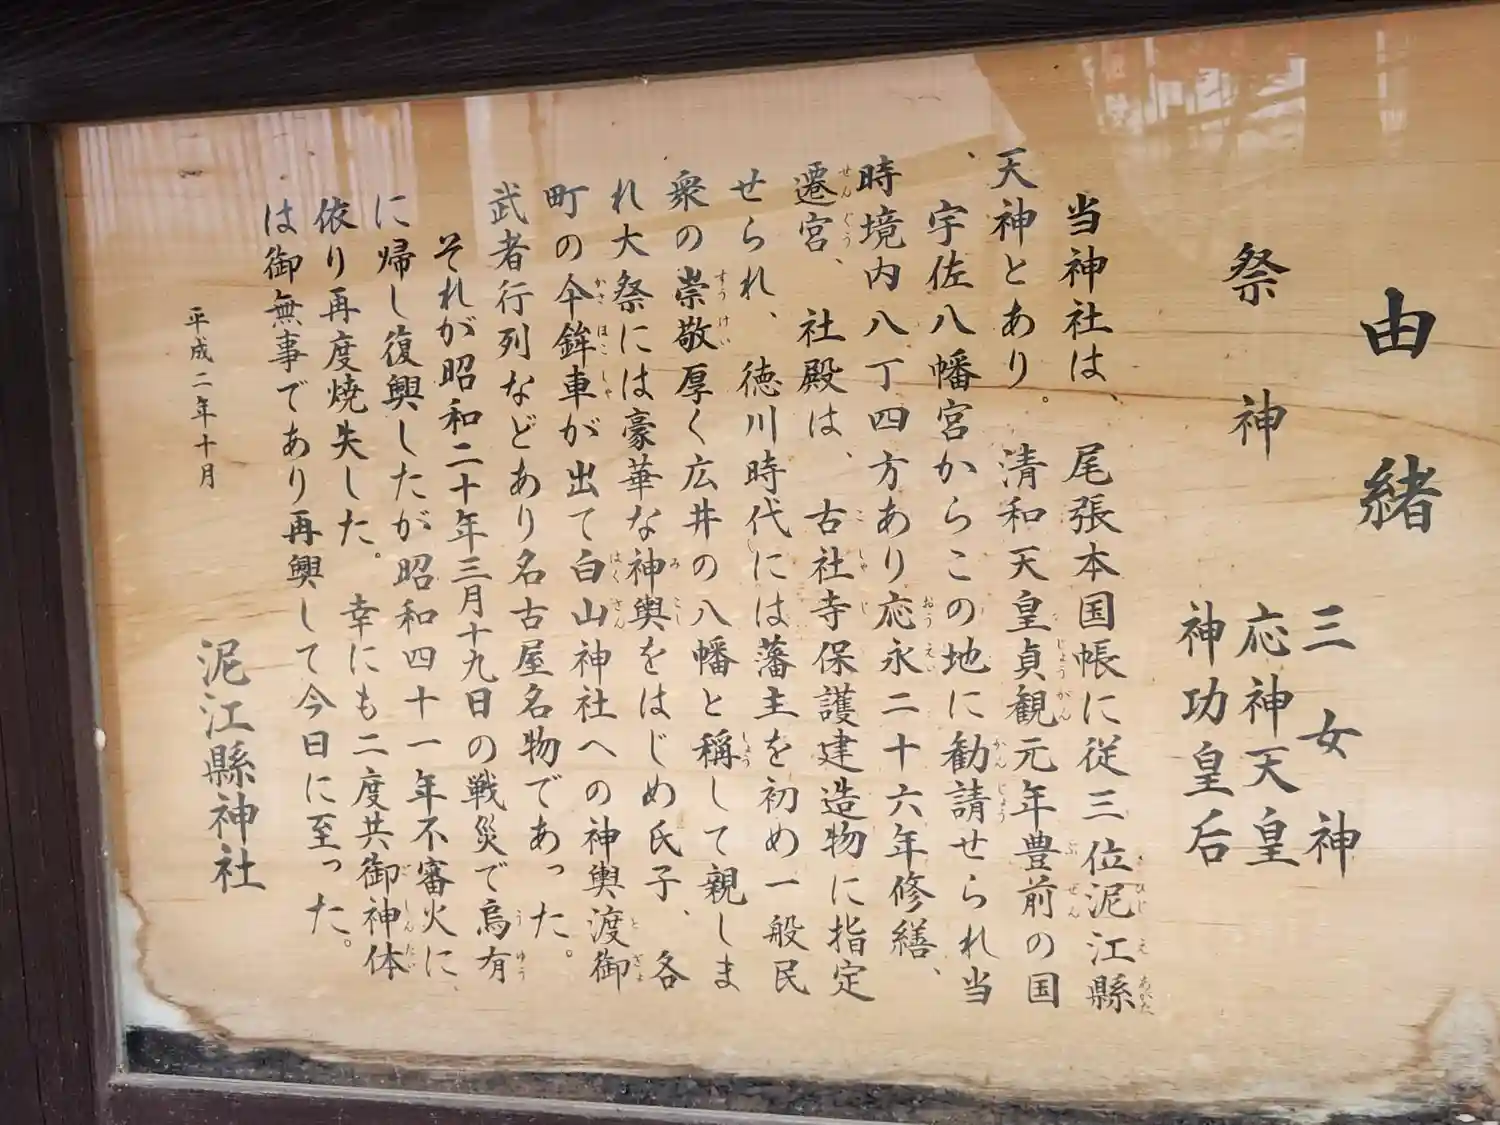 由緒
祭神
三女神
応神天皇
神功皇后
当神社は、尾張本国帳に従三位泥江縣
天神とあり。清和天皇貞観元年豊前の国
宇佐八幡宮からこの地に勧請せられ当
時境内八丁四方あり応永二十六年修繕、
遷宮、社殿は、古社寺保護建造物に指定
せられ、徳川時代には藩主を初め一般民
衆の崇敬厚く広井の八幡と稱して親しま
れ大祭には豪華な神輿をはじめ氏子、各
町の傘鉾車が出て白山神社への神輿渡御
武者行列などあり名古屋名物であった。
それが昭和二十年三月十九日の戦災で烏有
に帰し復興したが昭和四十一年不審火に、
依り再度焼失した。幸にも二度共御神体
は御無事であり再興して今日に至った。
平成二年十月
泥江縣神社